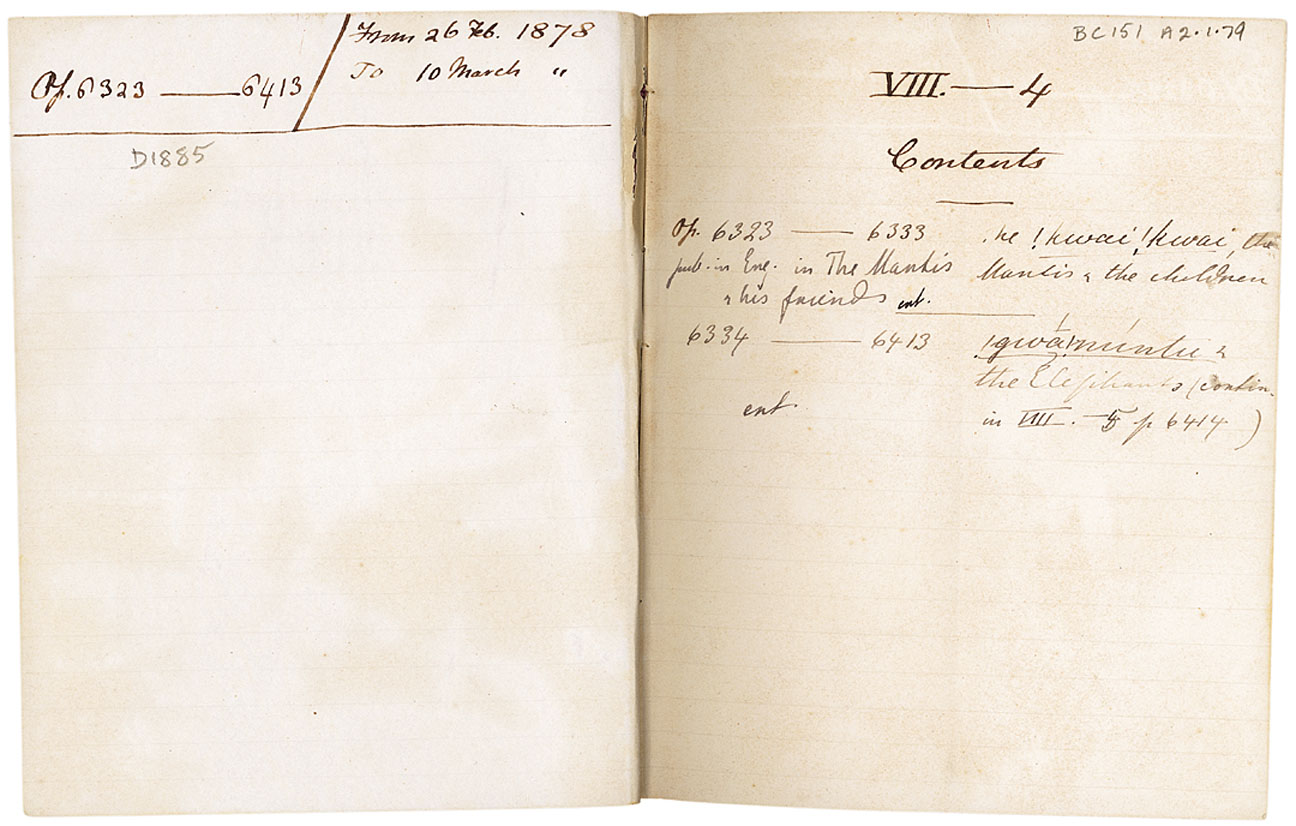 From 26 Feb. 1878
Op. 6323 — 6413
To 10 March "
D1885
BC151 A2.1.79
VIII. — 4
Contents
Op. 6323 — 6333 The !kwai !kwai, the
pub. in Eng. in The Mantis Mantis & the children
& his friends ent.
6334 — 6413 &
the Elephants (contin.
ent. in VIII. — 5 p 6414)